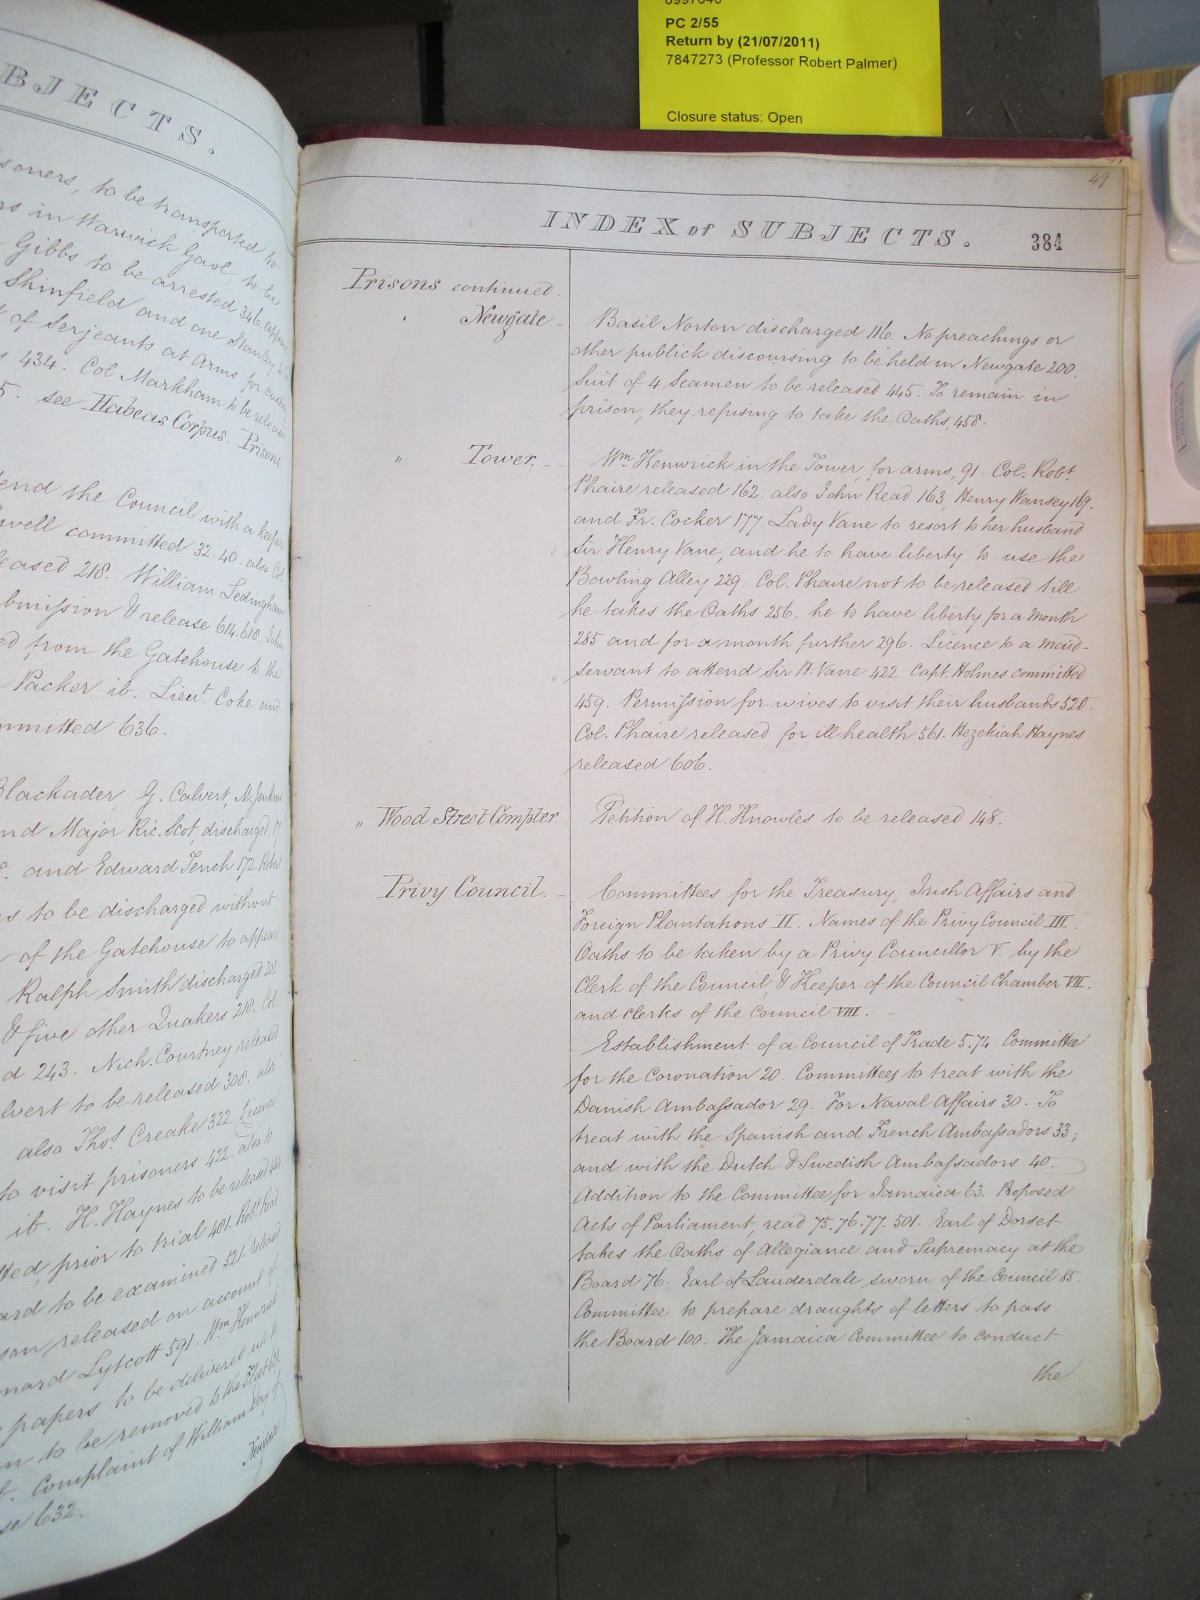 PC 2/55
Return by (21/07/2011)
7847273 (Professor Robert Palmer)
Closure status: Open
BJECTS.
soners, to be transported to
rs in Warwick Gaol, to be
Gibbs to be arrested 346.
Shinfield and one Stanley
of Serjeants at Arms for
434. Col. Markham to be
5. see Habeas Corpus. Prisons
end the Council with a
well committed 32. 40. also Col.
eased 218. William Ledingham
bmission & release 614. 618. John
ed from the Gatehouse to the
Packer ib. Lieut. Coke and
mmitted 636.
Blackader, G. Calvert, M. Jenkins
nd Major Ric. Scot, discharged
and Edward Tench 172
s to be discharged without
of the Gatehouse to appear
Ralph Smith discharged
& five other Quakers 210. Col.
d 243. Nich. Courtney released
lvert to be released 308. also
also Thos. Creake 322. Licence
to visit prisoners 422. also
ib. H. Haynes to be released
tted, prior to trial 481.
ard to be examined 521.
son released on account of
nard Lytcott 591. Wm. Kenwrick
papers to be delivered up to
n to be removed to the
Complaint of William Day
se 632.
49
INDEX of SUBJECTS.
384
Prisons continued.
" Newgate.
Basil Norton discharged 116. No preachings or
other publick discoursing to be held in Newgate 200.
Suit of 4 Seamen to be released 445. To remain in
prison, they refusing to take the Oaths, 458.
" Tower.
Wm. Kenwrick in the Tower, for arms, 91. Col. Robt.
Phaire released 162. also John Read 163, Henry Wansey 169.
and Fr. Cocker 177. Lady Vane to resort to her husband
Sir Henry Vane, and he to have liberty to use the
Bowling Alley 229. Col. Phaire not to be released till
he takes the Oaths 256. he to have liberty for a month
285 and for a month further 296. Licence to a maid-
servant to attend Sir H. Vane 422. Capt. Holmes committed
459. Permission for wives to visit their husbands 520.
Col. Phaire released for ill health 561. Hezekiah Haynes
released 606.
" Wood Street Compter.
Petition of H. Knowles to be released 148.
Privy Council.
Committees for the Treasury, Irish Affairs and
Foreign Plantations II. Names of the Privy Council III.
Oaths to be taken by a Privy Councillor V. by the
Clerk of the Council, & Keeper of the Council Chamber VII.
and clerks of the Council VIII.
Establishment of a Council of Trade 5. 74. Committee
for the Coronation 20. Committees to treat with the
Danish Ambassador 29. For Naval Affairs 30. To
treat with the Spanish and French Ambassadors 33;
and with the Dutch & Swedish Ambassadors 40.
Addition to the Committee for Jamaica 63. Proposed
Acts of Parliament, read 75. 76. 77. 501. Earl of Dorset
takes the Oaths of Allegiance and Supremacy at the
Board 76. Earl of Lauderdale sworn of the Council 85.
Committee to prepare draughts of letters to pass
the Board 100. The Jamaica Committee to conduct
the